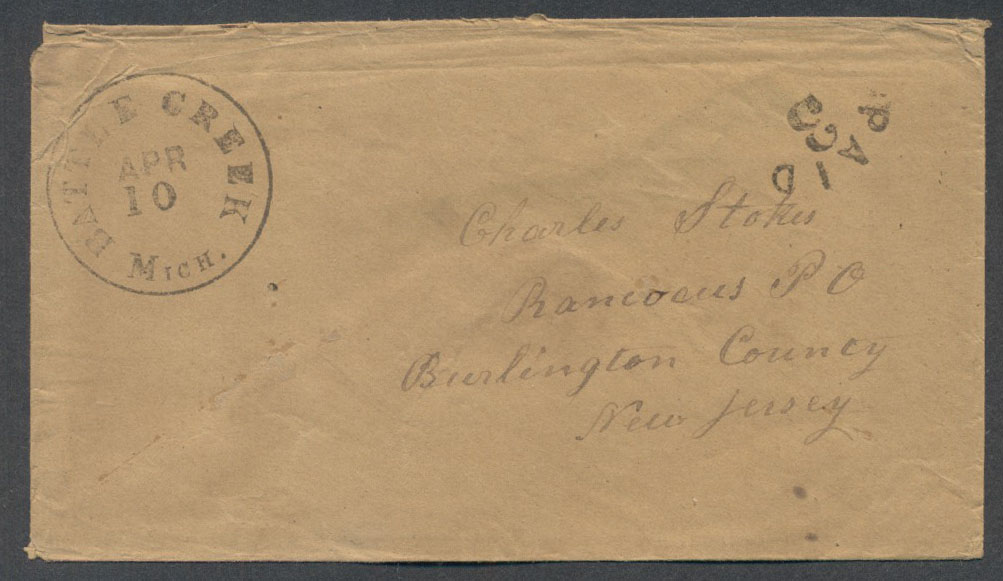 BATTLE CREEK
APR
10
MICH.
PAID
3
Charles Stokes
Rancocus P O
Burlington County
New Jersey